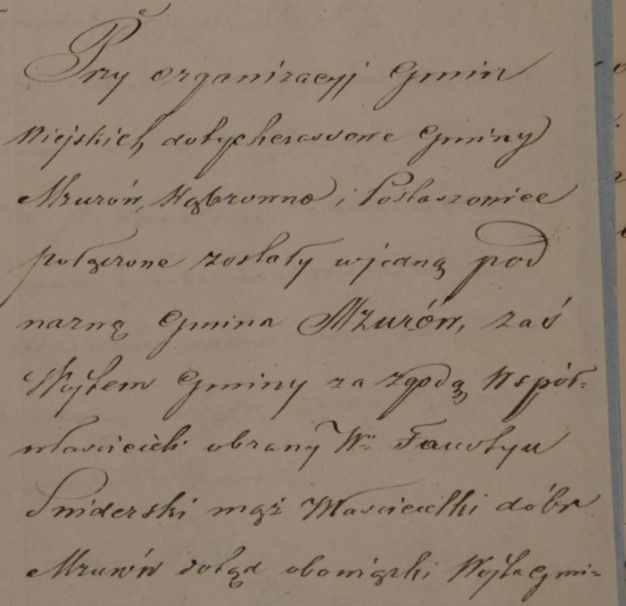 Przy organizacyj Gmin
Wiejskich, dotychczasowe Gminy
Mzurów, Dąbrowno i Postaszowice
połączone zostały w jedną pod
nazwą Gmina Mzurów, zaś
Wójtem Gminy za zgodą Współ-
włascicieli obrany W. Faustyn
Sniderski mąż Włascicielki dóbr
Mzurów dotąd obowiązki Wójta Gmi-